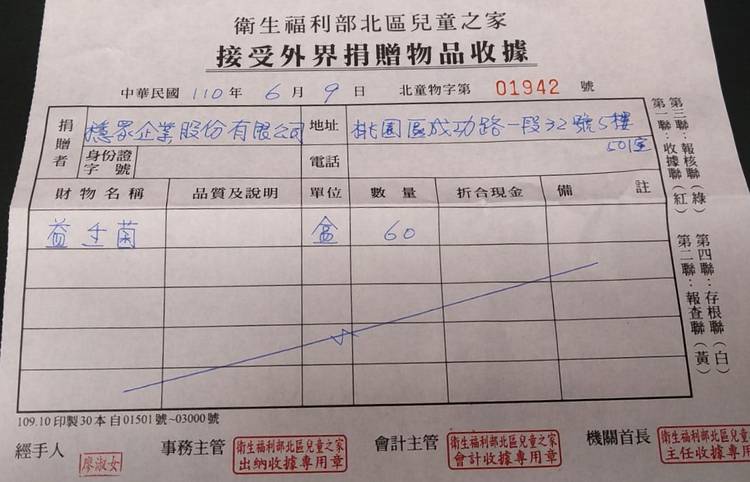 衛生福利部北區兒童之家
接受外界捐贈物品收據
中華民國 110 年 6 月 9 日 北童物字第 01942 號
捐贈者 穩眾企業股份有限公司 地址 桃園區成功路一段32號5樓
501室
身份證字號 電話
財物名稱 品質及說明 單位 數量 折合現金 備註
益生菌 盒 60
第一聯：收據聯（紅）
第二聯：報查聯（黃）
第三聯：報核聯（綠）
第四聯：存根聯（白）
109.10印製30本自01501號~03000號
經手人 廖淑女 事務主管 衛生福利部北區兒童之家 會計主管 衛生福利部北區兒童之家 機關首長 衛生福利部北區兒童之
出納收據專用章 會計收據專用章 主任收據專用